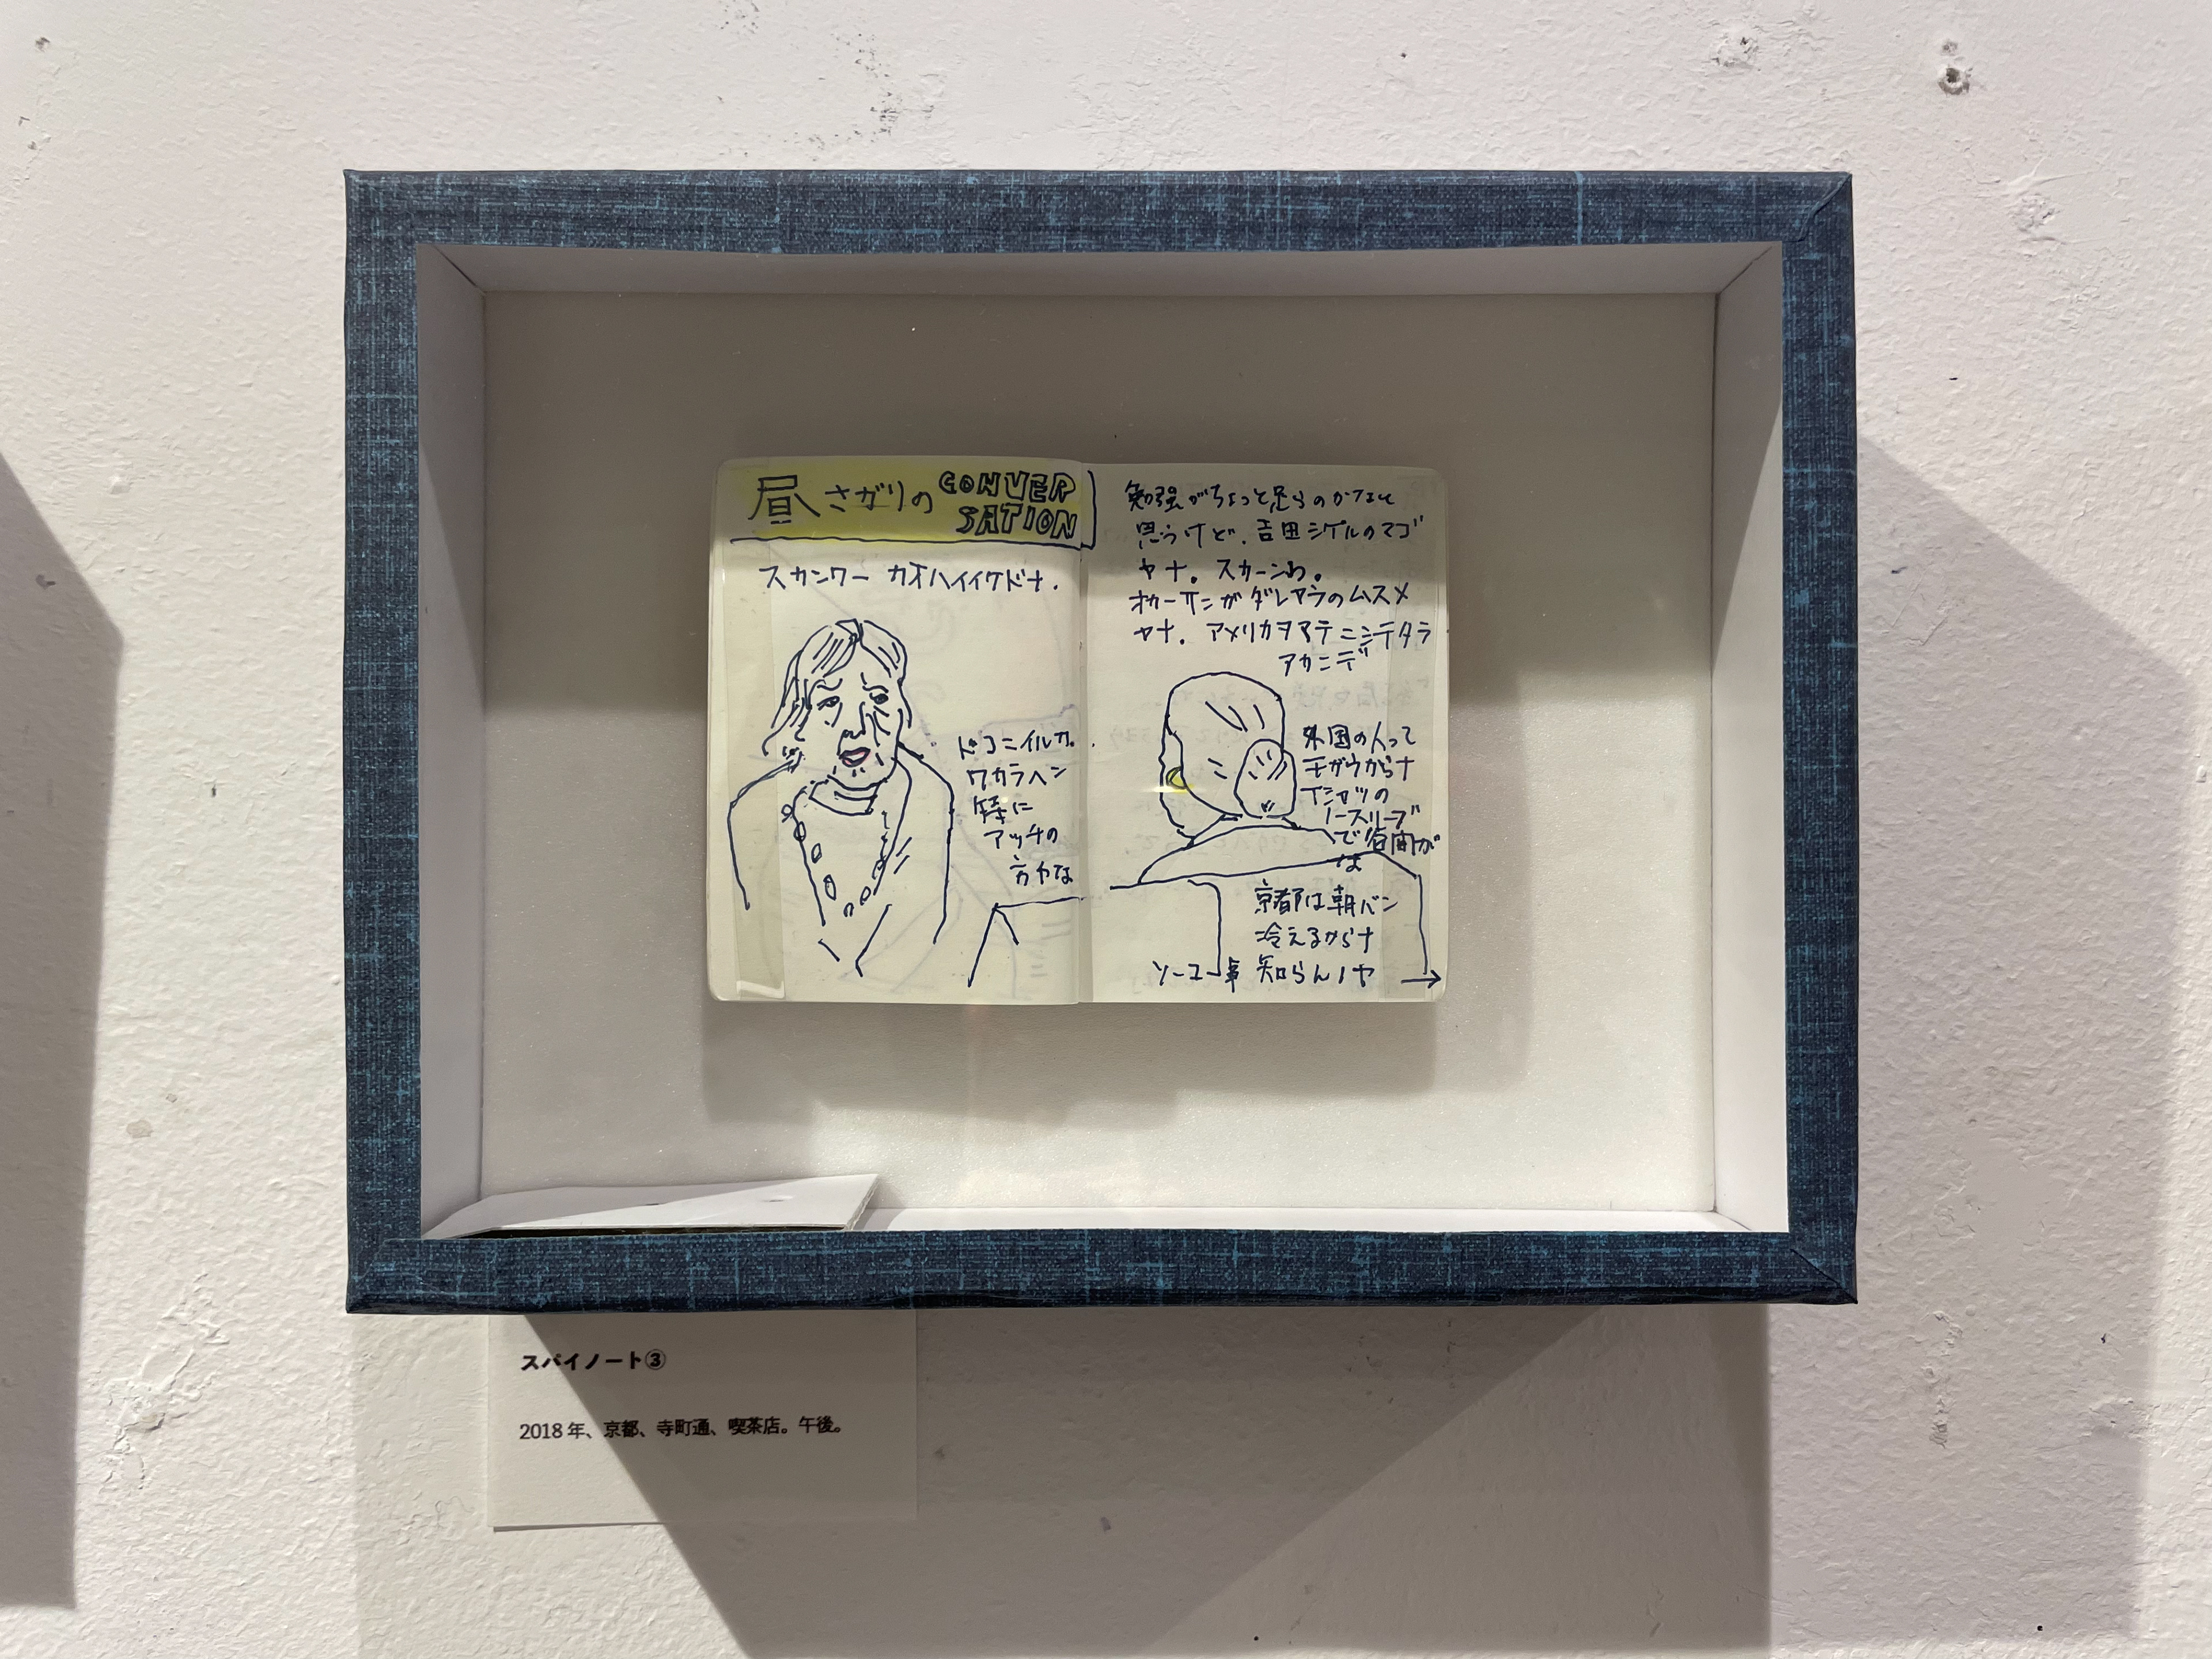 昼さがりの CONVER
SATION
スカンワー カオハイイケドナ.
ドコニイルカ。
ワカラヘン
特に
アッチの
方やな
勉強がちょっと足らのかなと
思うけど、吉田シゲルのマゴ
ヤナ。スカーンわ。
オカーサンがダレヤラのムスメ
ヤナ. アメリカヲアテニシテタラ
アカンデ
外国の人って
モガウからナ
Tシャツの
ノースリーブ
で昼間が
は
京都は朝バン
冷えるからナ
ソーユー事 知らんノヤ →
スパイノート③
2018 年、京都、寺町通、喫茶店。午後。